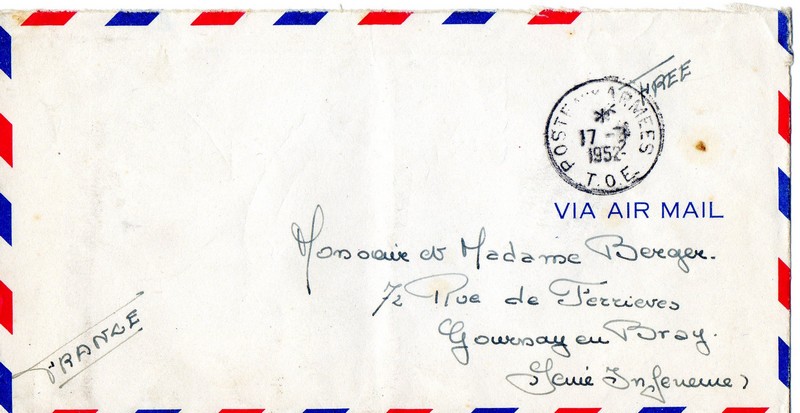 FREE
POSTE AUX ARMEES
17
1952
T.O.E.
VIA AIR MAIL
Monsieur et Madame Berger.
72 Rue de Ferrieres
Gournay en Bray.
(Seine Inferieure)
FRANCE